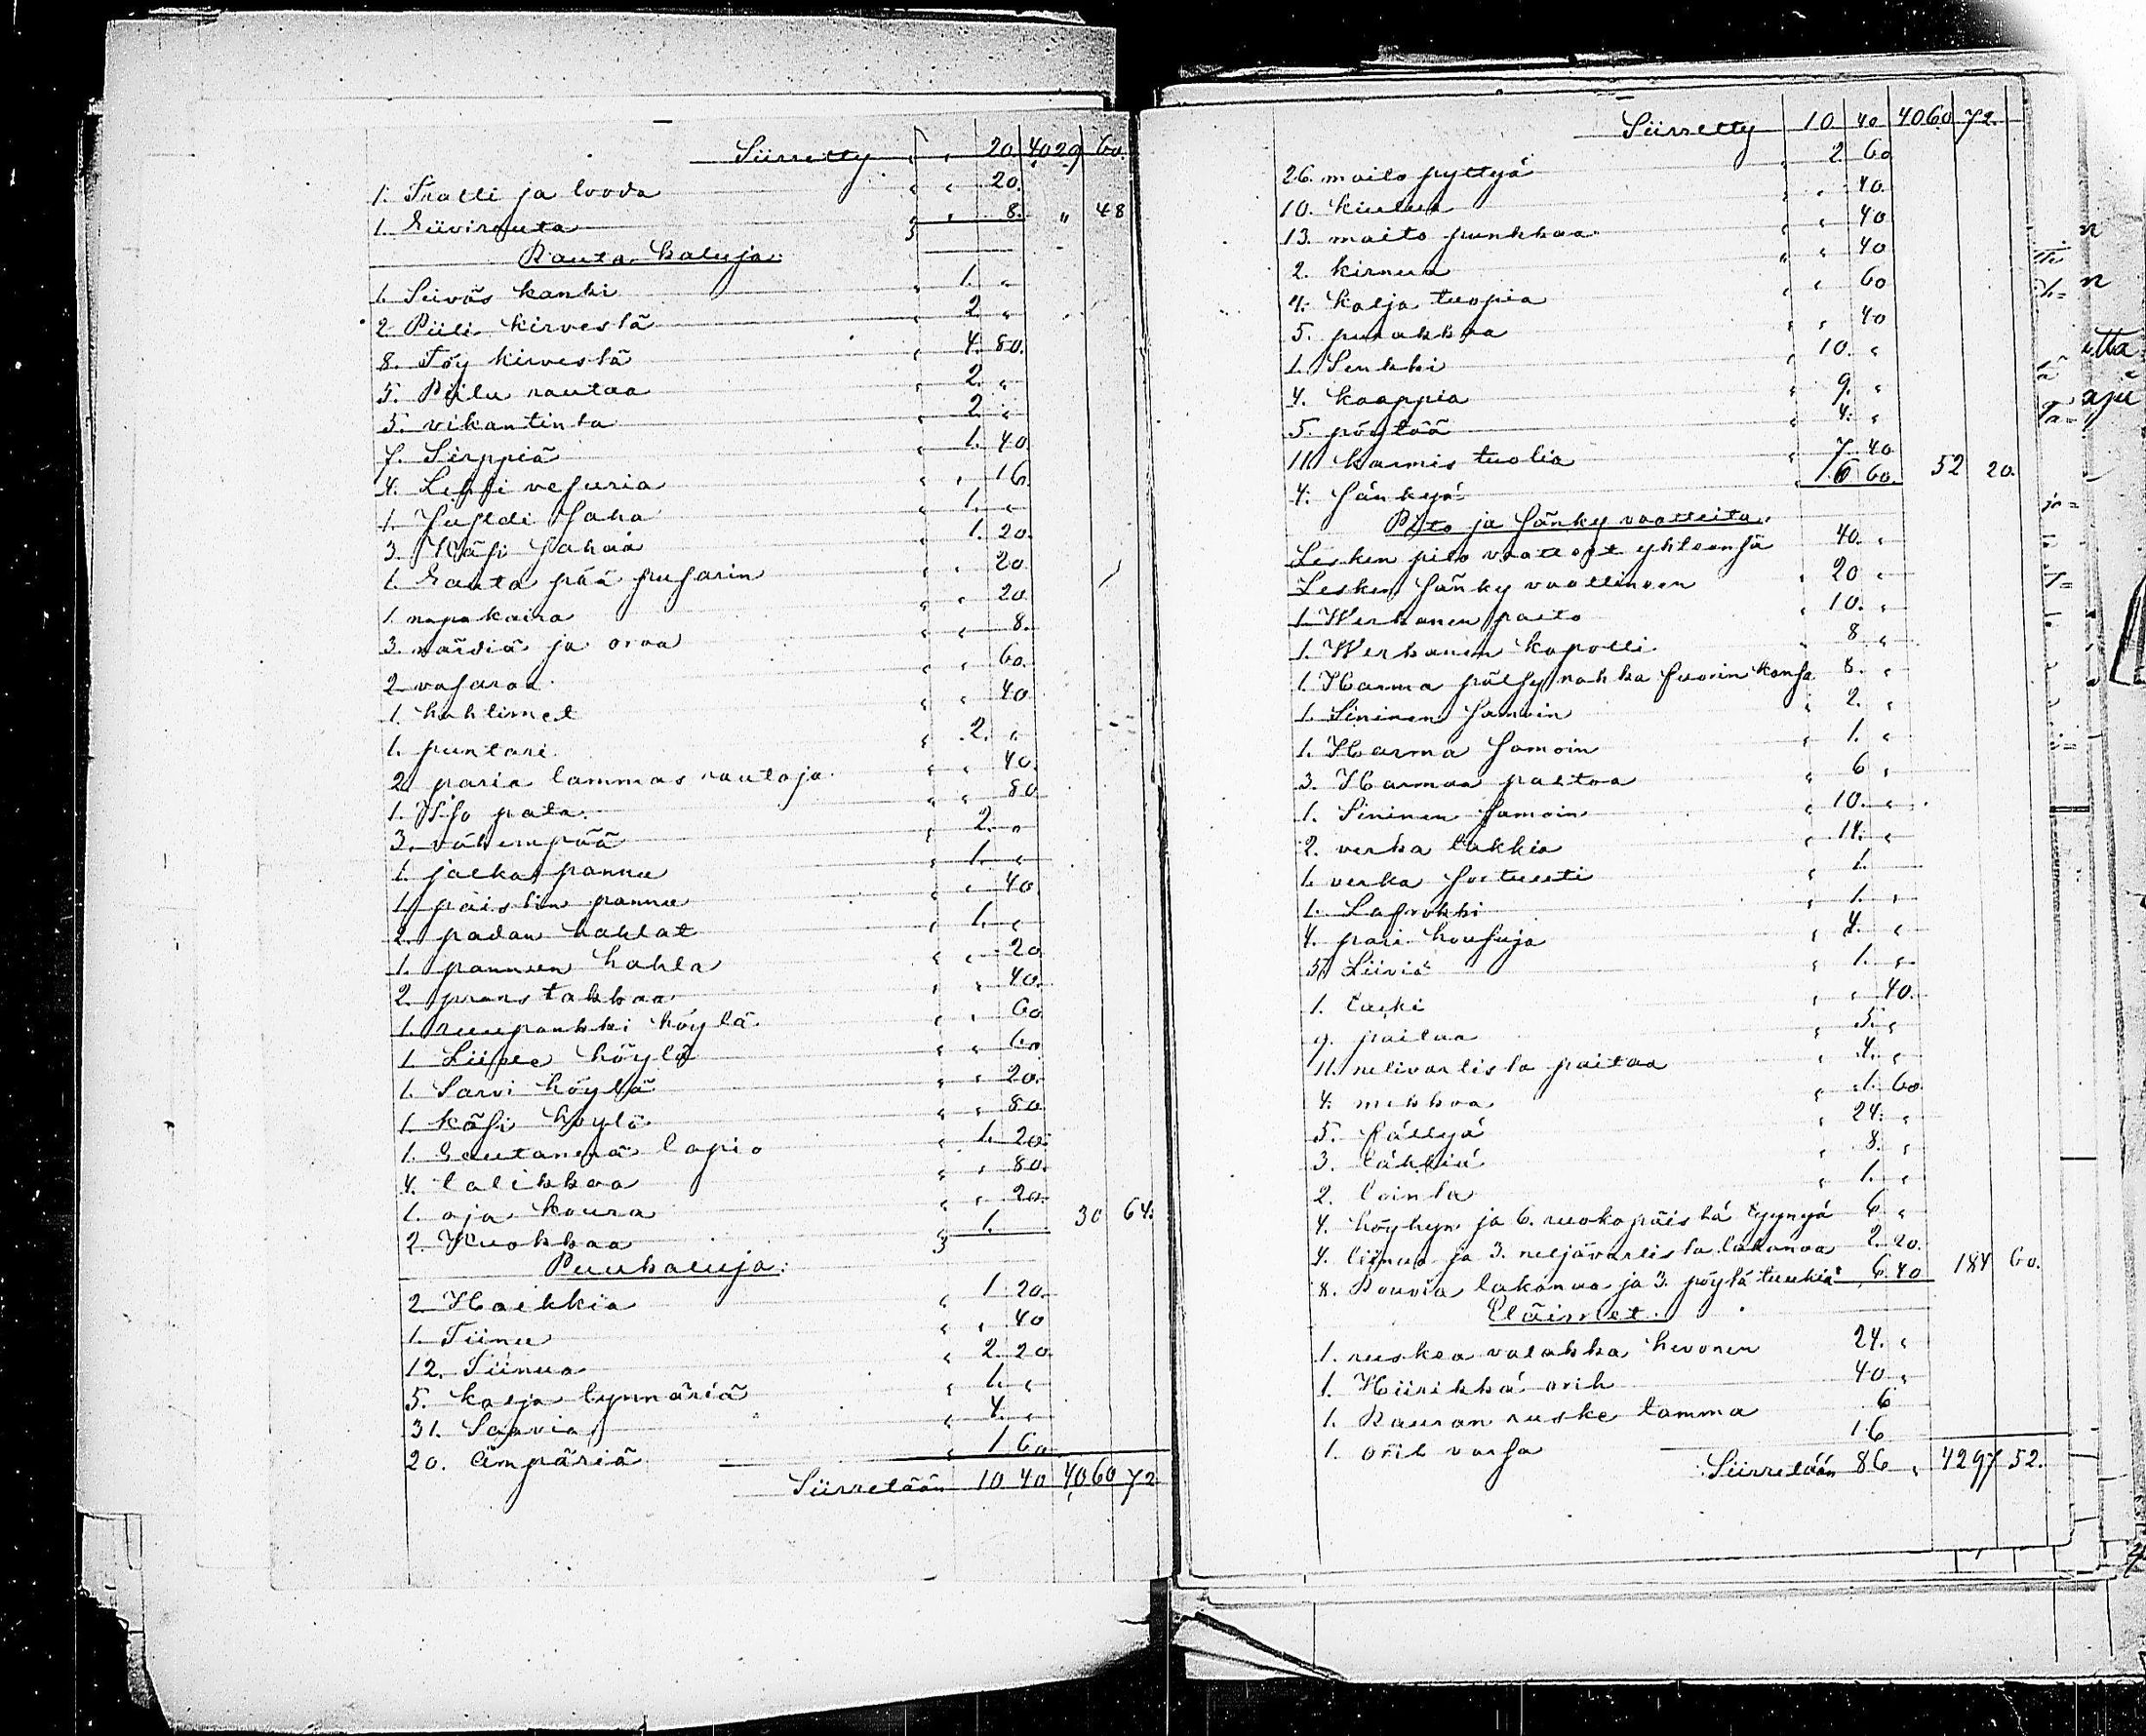 Siirretty " " 20 4029 60.
1. Tratti ja looda " " 20.
1. Siivirauta " " 8. " 48
Rauta kaluja:
1. Seiväs kanki " 1. "
2 Piili kirvestä " 2 "
8. Töy kirvestä " 4. 80.
5. Piilu rautaa " 2. "
5. vikantinta " 2. "
7. Sirppiä " 1. 40
4. Lehti vesuria " " 16
1. Juhldi Saha " 1. "
3. Käsi sahaa " 1. 20.
1. Rauta pää pusarin " " 20
1. napakaira " " 20.
3. näviä ja oraa " " 8.
2 vasaraa " " 60.
1. hohtimet " " 40
1. puntari " 2. "
2 paria lammas rautoja " " 40.
1. Iso pata " " 80
3. vähempää " 2. "
1. jalka pannu " 1. "
1. paistin pannu " " 40.
2. padan hahlat " 1. "
1. pannun hahla " " 20
2. prans takkaa " " 40.
1. ruupankki höylä " " 60
1. Liipee höylä " " 60
1. Sarvi höylä " " 20.
1. käsi höylä " " 80
1. Rautanenä lapio " 1. 20.
4. talikkoa " " 80.
1. oja koura " " 20.
2. Kuokkaa 1. 30 64.
Puukaluja:
2 Haikkia " 1. 20.
1. Tiinu " " 40
12. Tiinua " 2. 20.
5. kalja lynnäriä " 1. "
31. Saavia " 4. "
20. ämpäriä " 1. 60
Siirretään 10 40 4060 72

Siirretty 10. 40 4060 72.
26. maito pyttyä " 2. 60
10. kiulua " " 40.
13. maito punkkaa " " 40
2. kirnua " " 40
4. kalja tuopia " " 60
5. purakkaa " " 40
1. Senkki " 10. "
4. kaappia " 9. "
5. pöytää " 4. "
11. karmis tuolia " 7 40
4. sänkyä 16 60. 52 20.
Pito ja sänky vaatteita.
Lesken pito vaatteet yhteensä 40. "
Lesken sänky vaattineen " 20 "
1 Werkanen palto " 10. "
1. Werkanen kapotti " 8 "
1. Harma pälsy nahka suorin kansa 8. "
1. Sininen samoin " 2. "
1. Harma samoin " 1. "
3. Harmaa paltoa " 6 "
1. Sininen samoin " 10. "
2. verka lakkia " 14. "
1. verka sortuuti " 1.
1. Lasrokki " 1. "
4. pari housuja " 4. "
5 Liiviä " 1. "
1. takki " " 40.
9. paitaa " 5. "
11. nelivarlista paitaa " 4. "
4. mekkoa " 1. 60.
5. fällyä " 24. "
3. täkkiä " 8. "
2. lointa " 1. "
4. höyhyn ja 6. ruokopäistä tyynyä 6 "
4. liinua ja 3. neljävarlista lakanaa 2. 20.
8. Rouvia lakanaa ja 3. pöytä tuukia 6. 40 184 60.
Eläimet.
1. ruskea valakka hevonen 24. "
1. Hiirikkä orih 40 "
1. Rauran ruske tamma 6
1. orih varsa 16
Siirretään 86 " 4297 52.